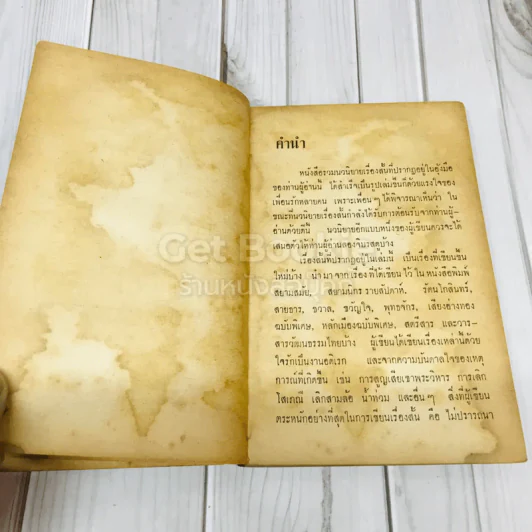 คำนำ
หนังสือรวมนวนิยายเรื่องสั้นที่ปรากฏอยู่ในอุ้งมือ
ของท่านผู้อ่านนี้ ได้สำเร็จเป็นรูปเล่มขึ้นก็ด้วยแรงใจของ
เพื่อนรักหลายคน เพราะเพื่อน ๆ ได้พิจารณาเห็นว่า ใน
ขณะที่นวนิยายเรื่องสั้นกำลังได้รับการต้อนรับจากท่านผู้-
อ่านด้วยดีนี้ นวนิยายอีกแบบหนึ่งของผู้เขียนควรจะได้
เสนอตัวให้ท่านผู้อ่านลองชิมรสดูบ้าง
เรื่องสั้นที่ปรากฏอยู่ในเล่มนี้ เป็นเรื่องที่เขียนขึ้น
ใหม่บ้าง นำมาจากเรื่องที่ได้เขียนไว้ในหนังสือพิมพ์
สยามสมัย, สยามนิกรรายสัปดาห์, รัตนโกสินทร์,
สายธาร, ชวาล, ขวัญใจ, พุทธจักร, เสียงอ่างทอง
ฉบับพิเศษ, หลักเมืองฉบับพิเศษ, สตรีสาร และวาร-
สารวัฒนธรรมไทยบ้าง ผู้เขียนได้เขียนเรื่องเหล่านี้ด้วย
ใจรักเป็นงานอดิเรก และจากความบันดาลใจของเหตุ
การณ์ที่เกิดขึ้น เช่น การสูญเสียเขาพระวิหาร การเลิก
โสเภณี เลิกสามล้อ น้ำท่วม และอื่น ๆ สิ่งที่ผู้เขียน
ตระหนักอย่างที่สุดในการเขียนเรื่องสั้น คือ ไม่ปรารถนา
Get Book
ร้านหนังสือ